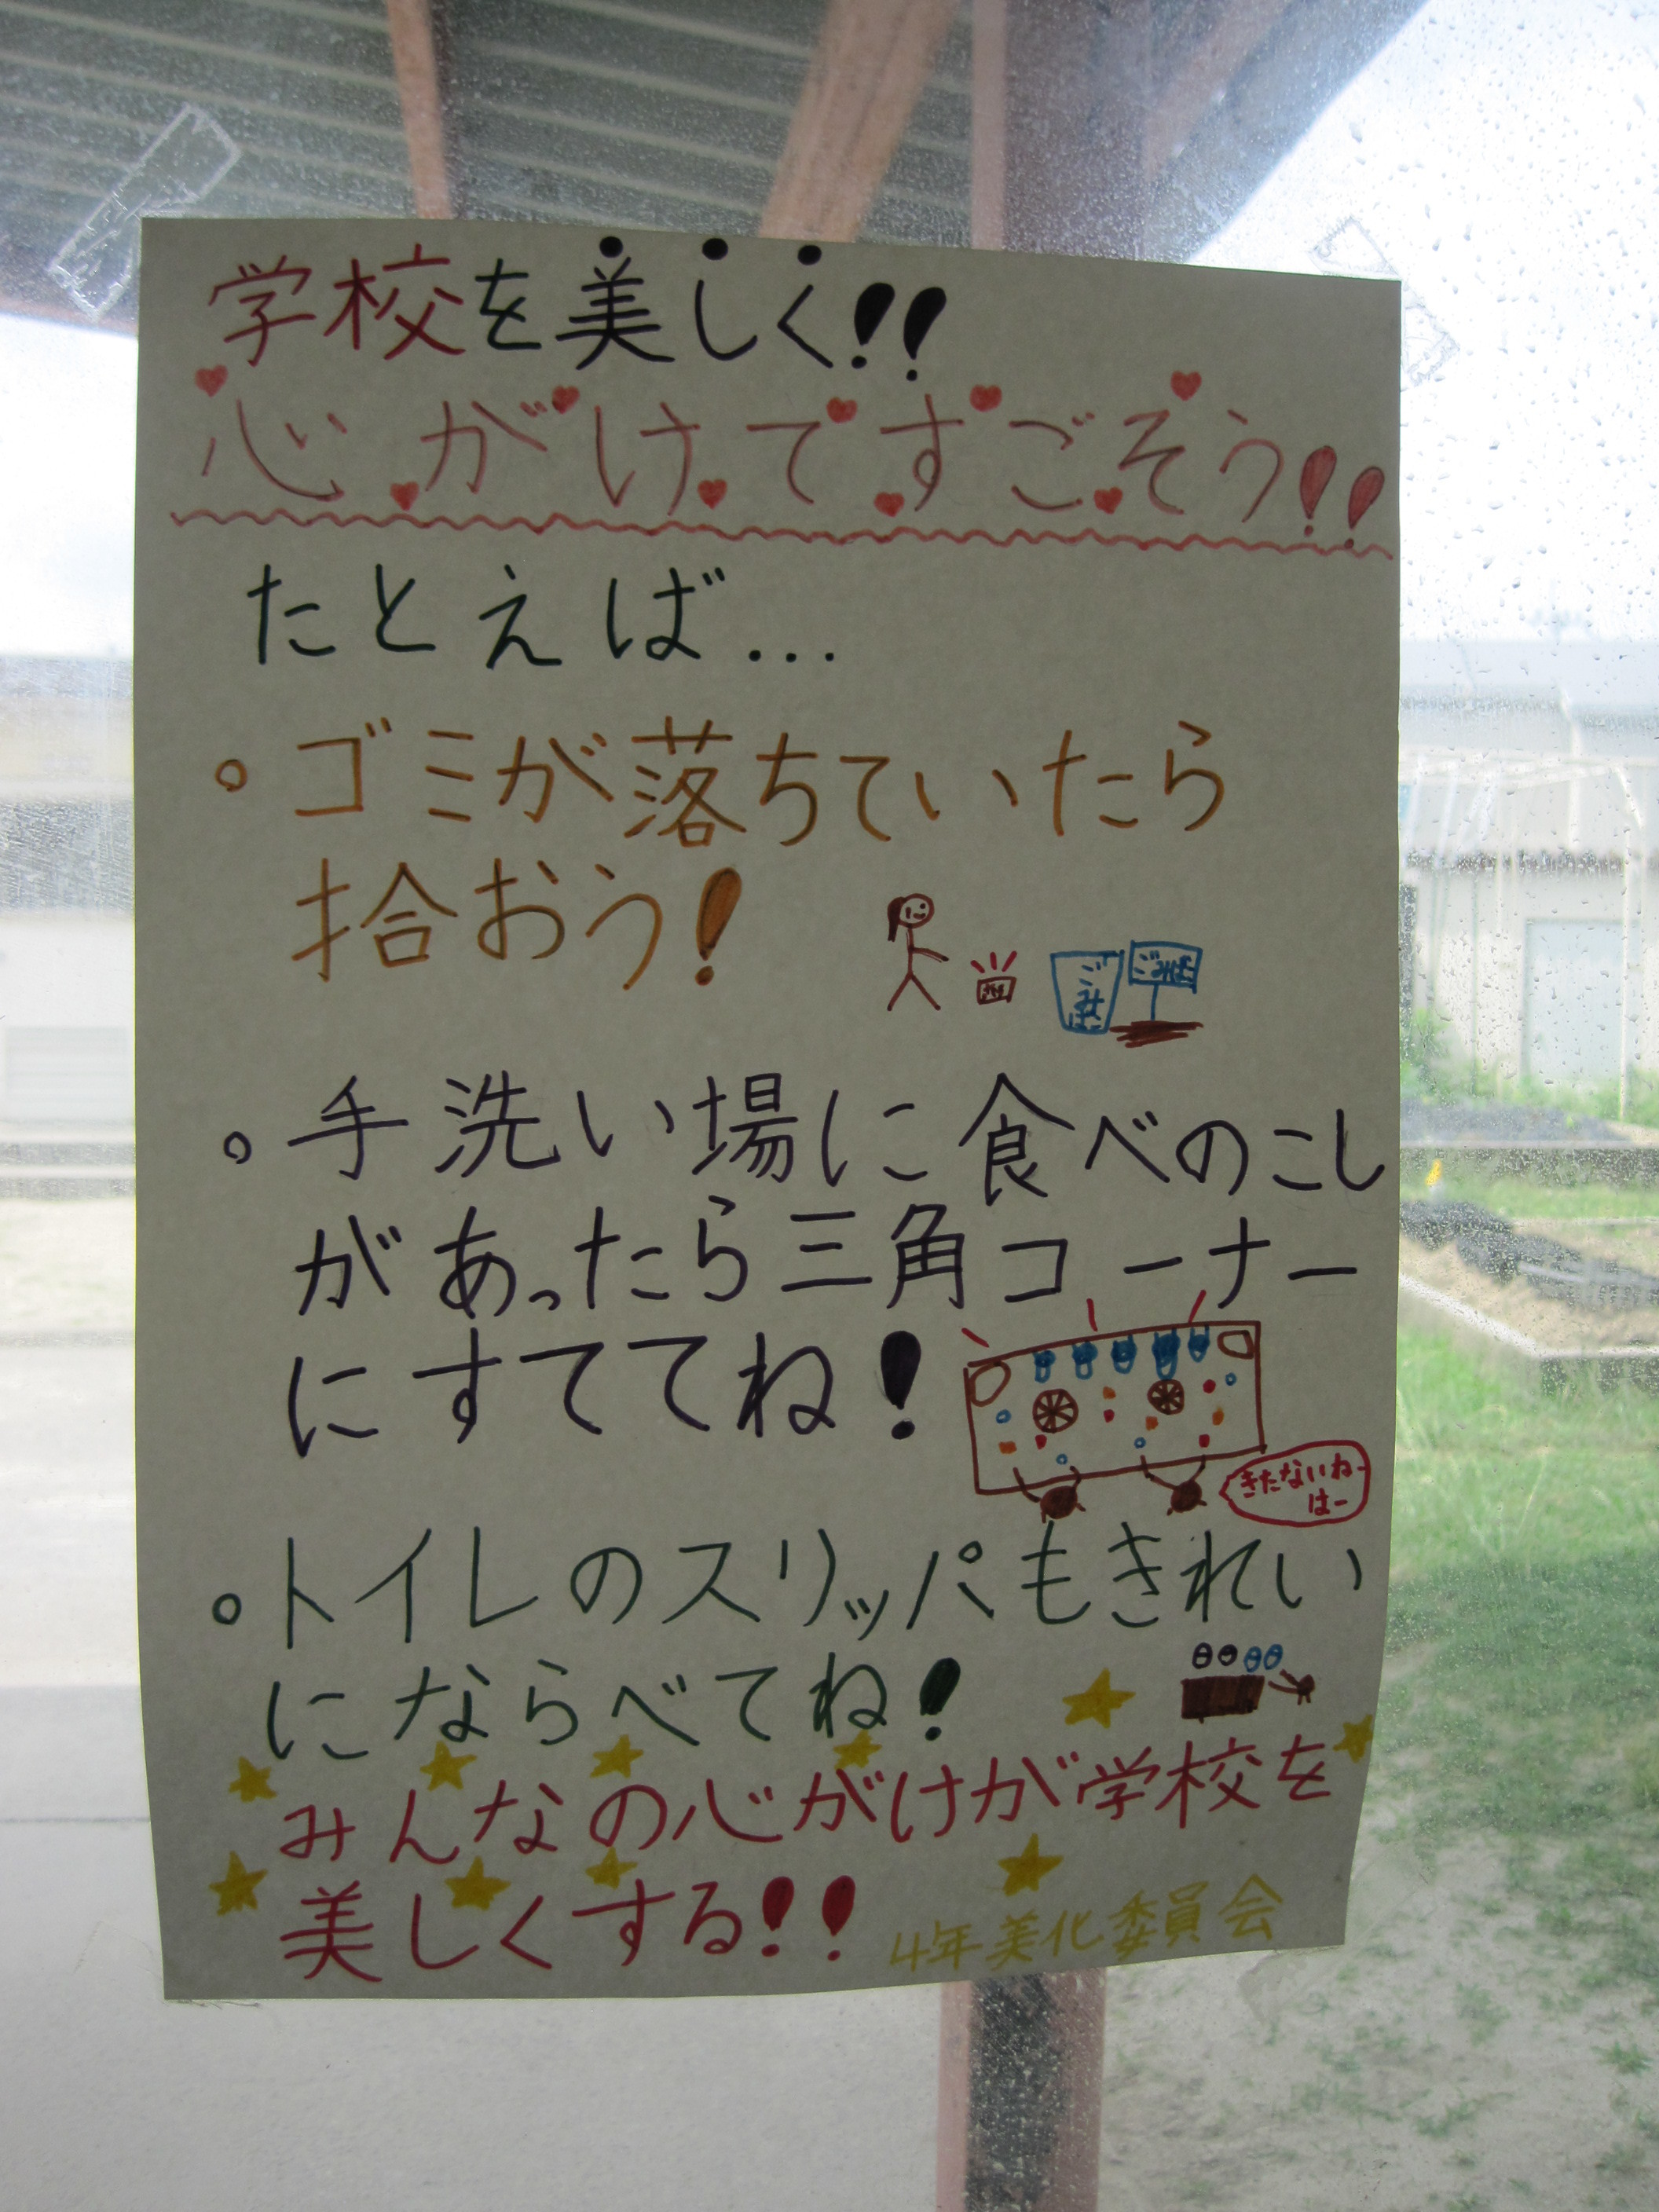 学校を美しく!!
心がけてすごそう!!
たとえば...
。ゴミが落ちていたら
拾おう!
ごみばこ
。手洗い場に食べのこし
があったら三角コーナー
にすててね!
きたないねー
はー
。トイレのスリッパもきれい
にならべてね!
みんなの心がけが学校を
美しくする!!
4年美化委員会